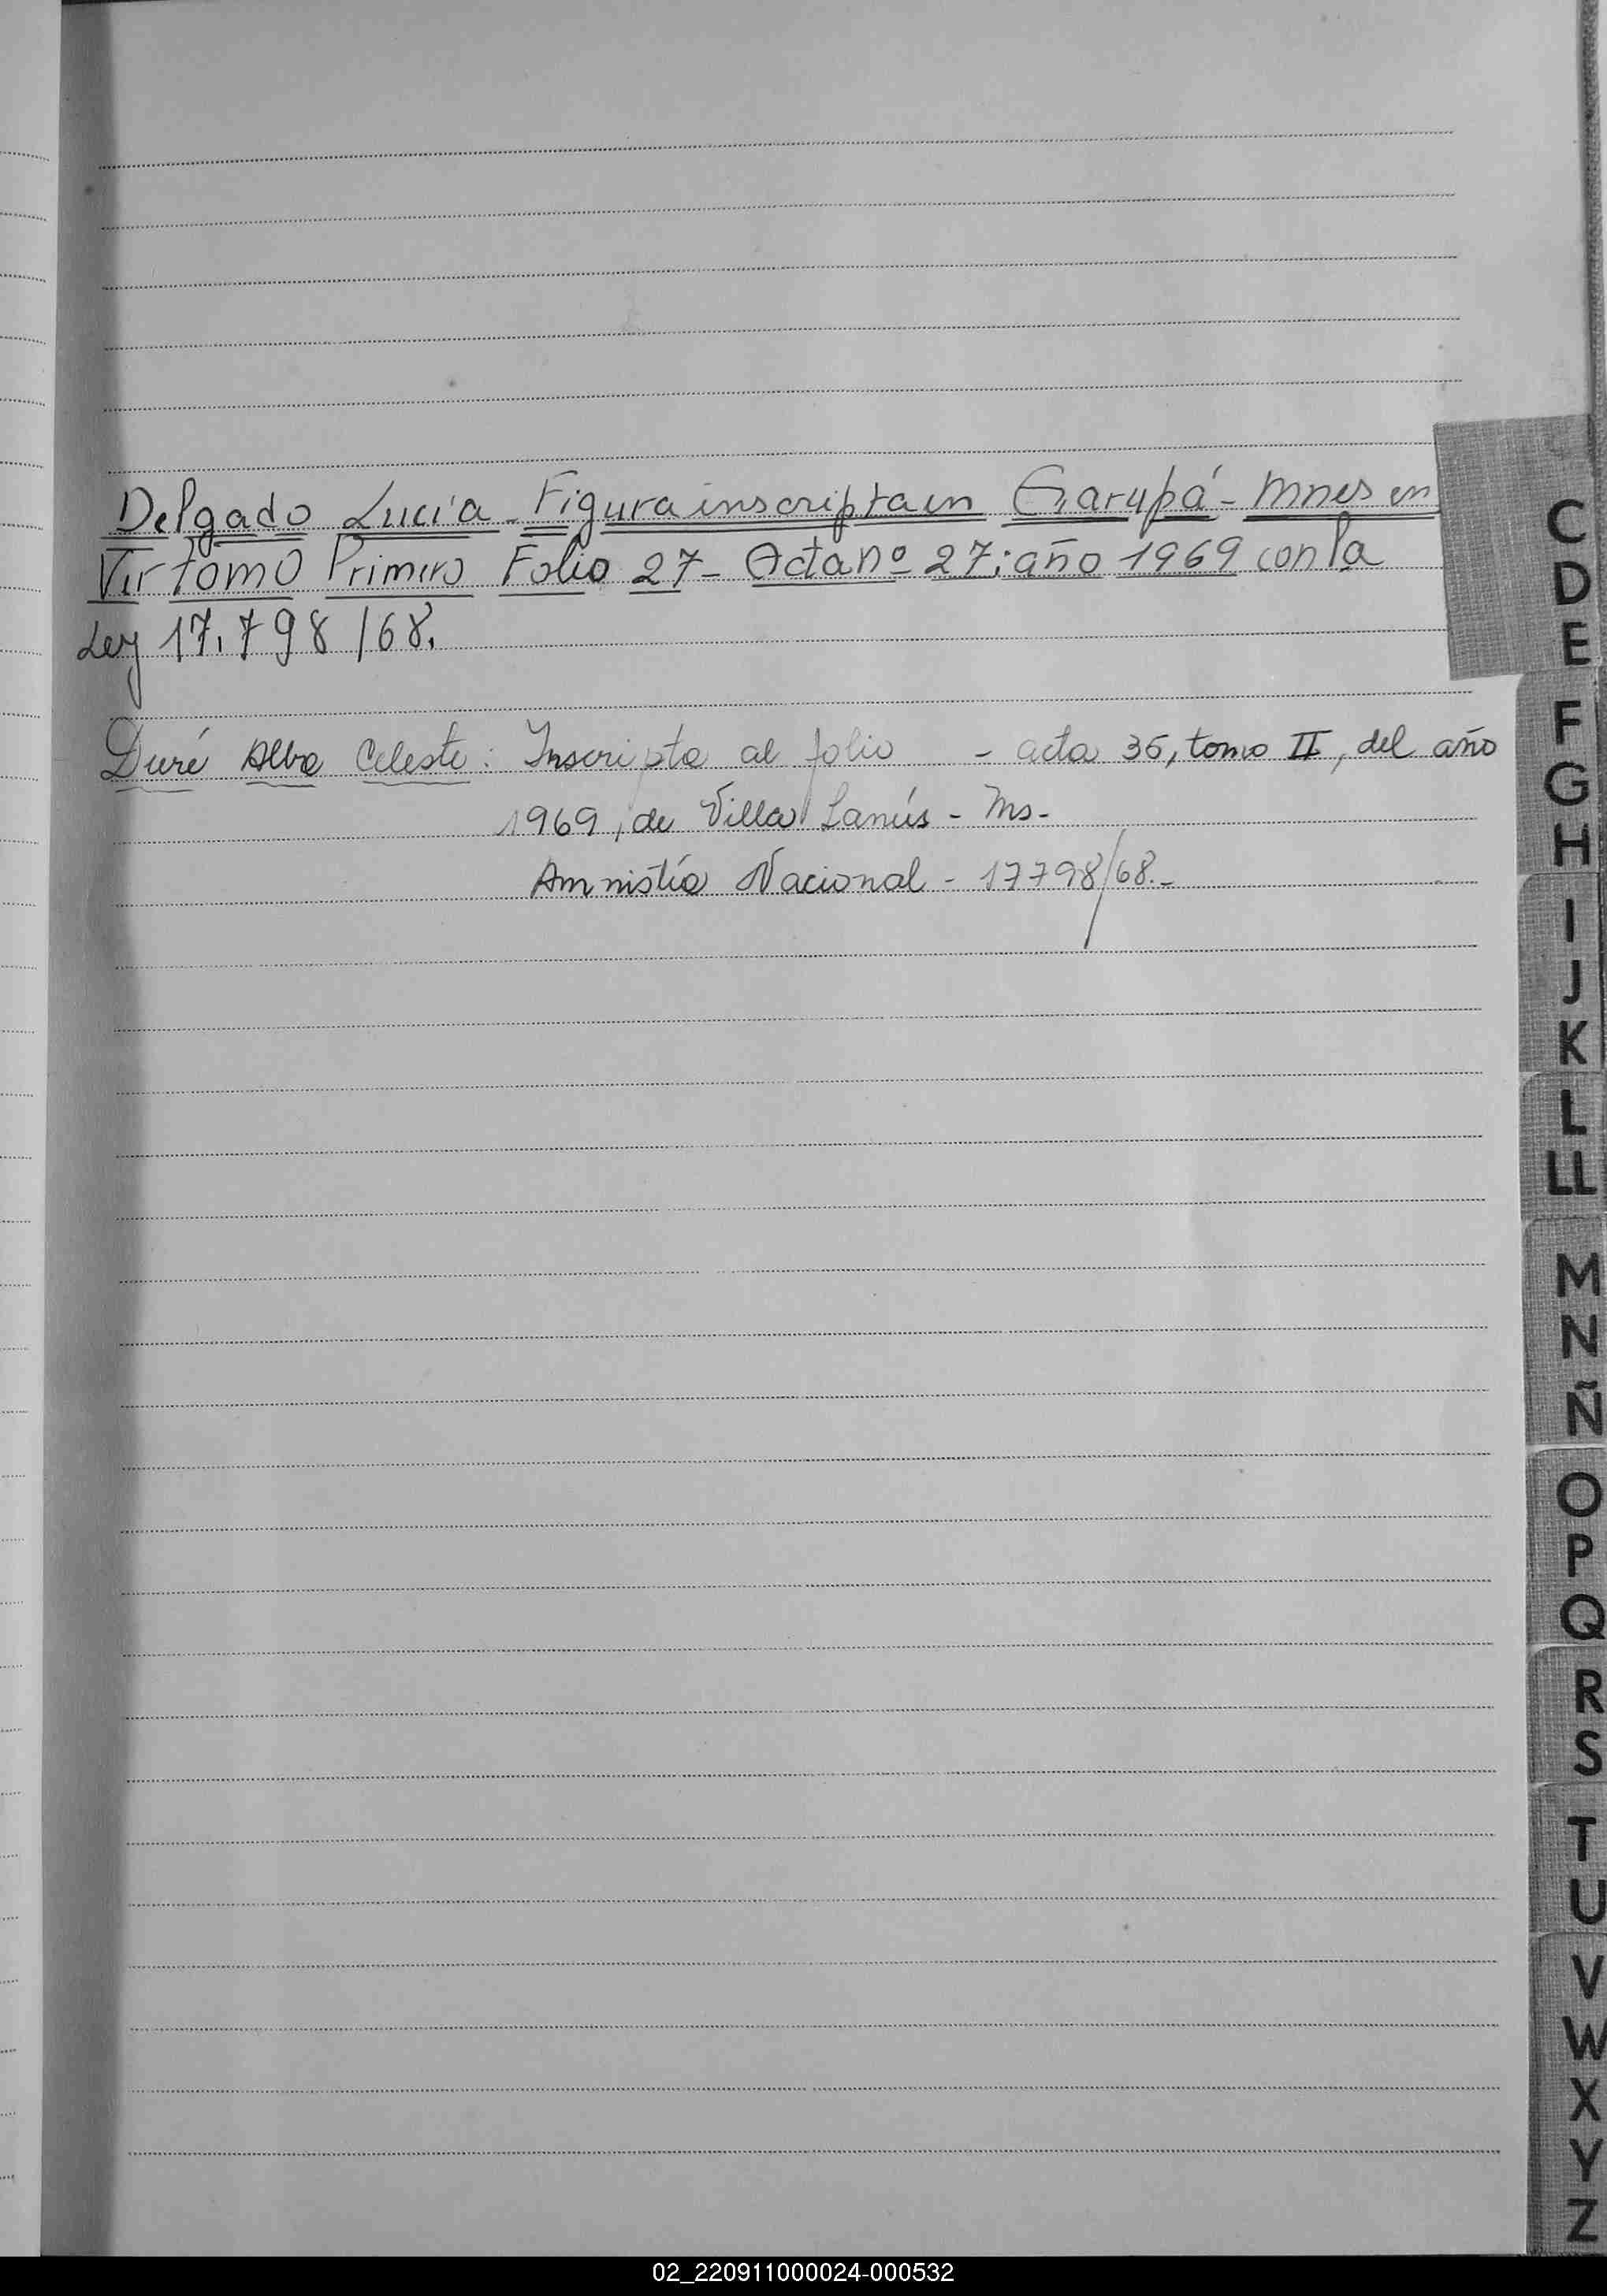 Delgado Lucía - Figura inscripta en Garupá - Mnes en
Vir Tomo Primero Folio 27 - Acta nº 27; año 1969 con la
Ley 17.798/68.
Duré Alba Celeste: Inscripta al folio - acta 35, tomo II, del año
1969, de Villa Lanús - Ms-
Amnistía Nacional - 17798/68.-
C
D
E
F
G
H
I
J
K
L
LL
M
N
Ñ
O
P
Q
R
S
T
U
V
W
X
Y
Z
02_220911000024-000532